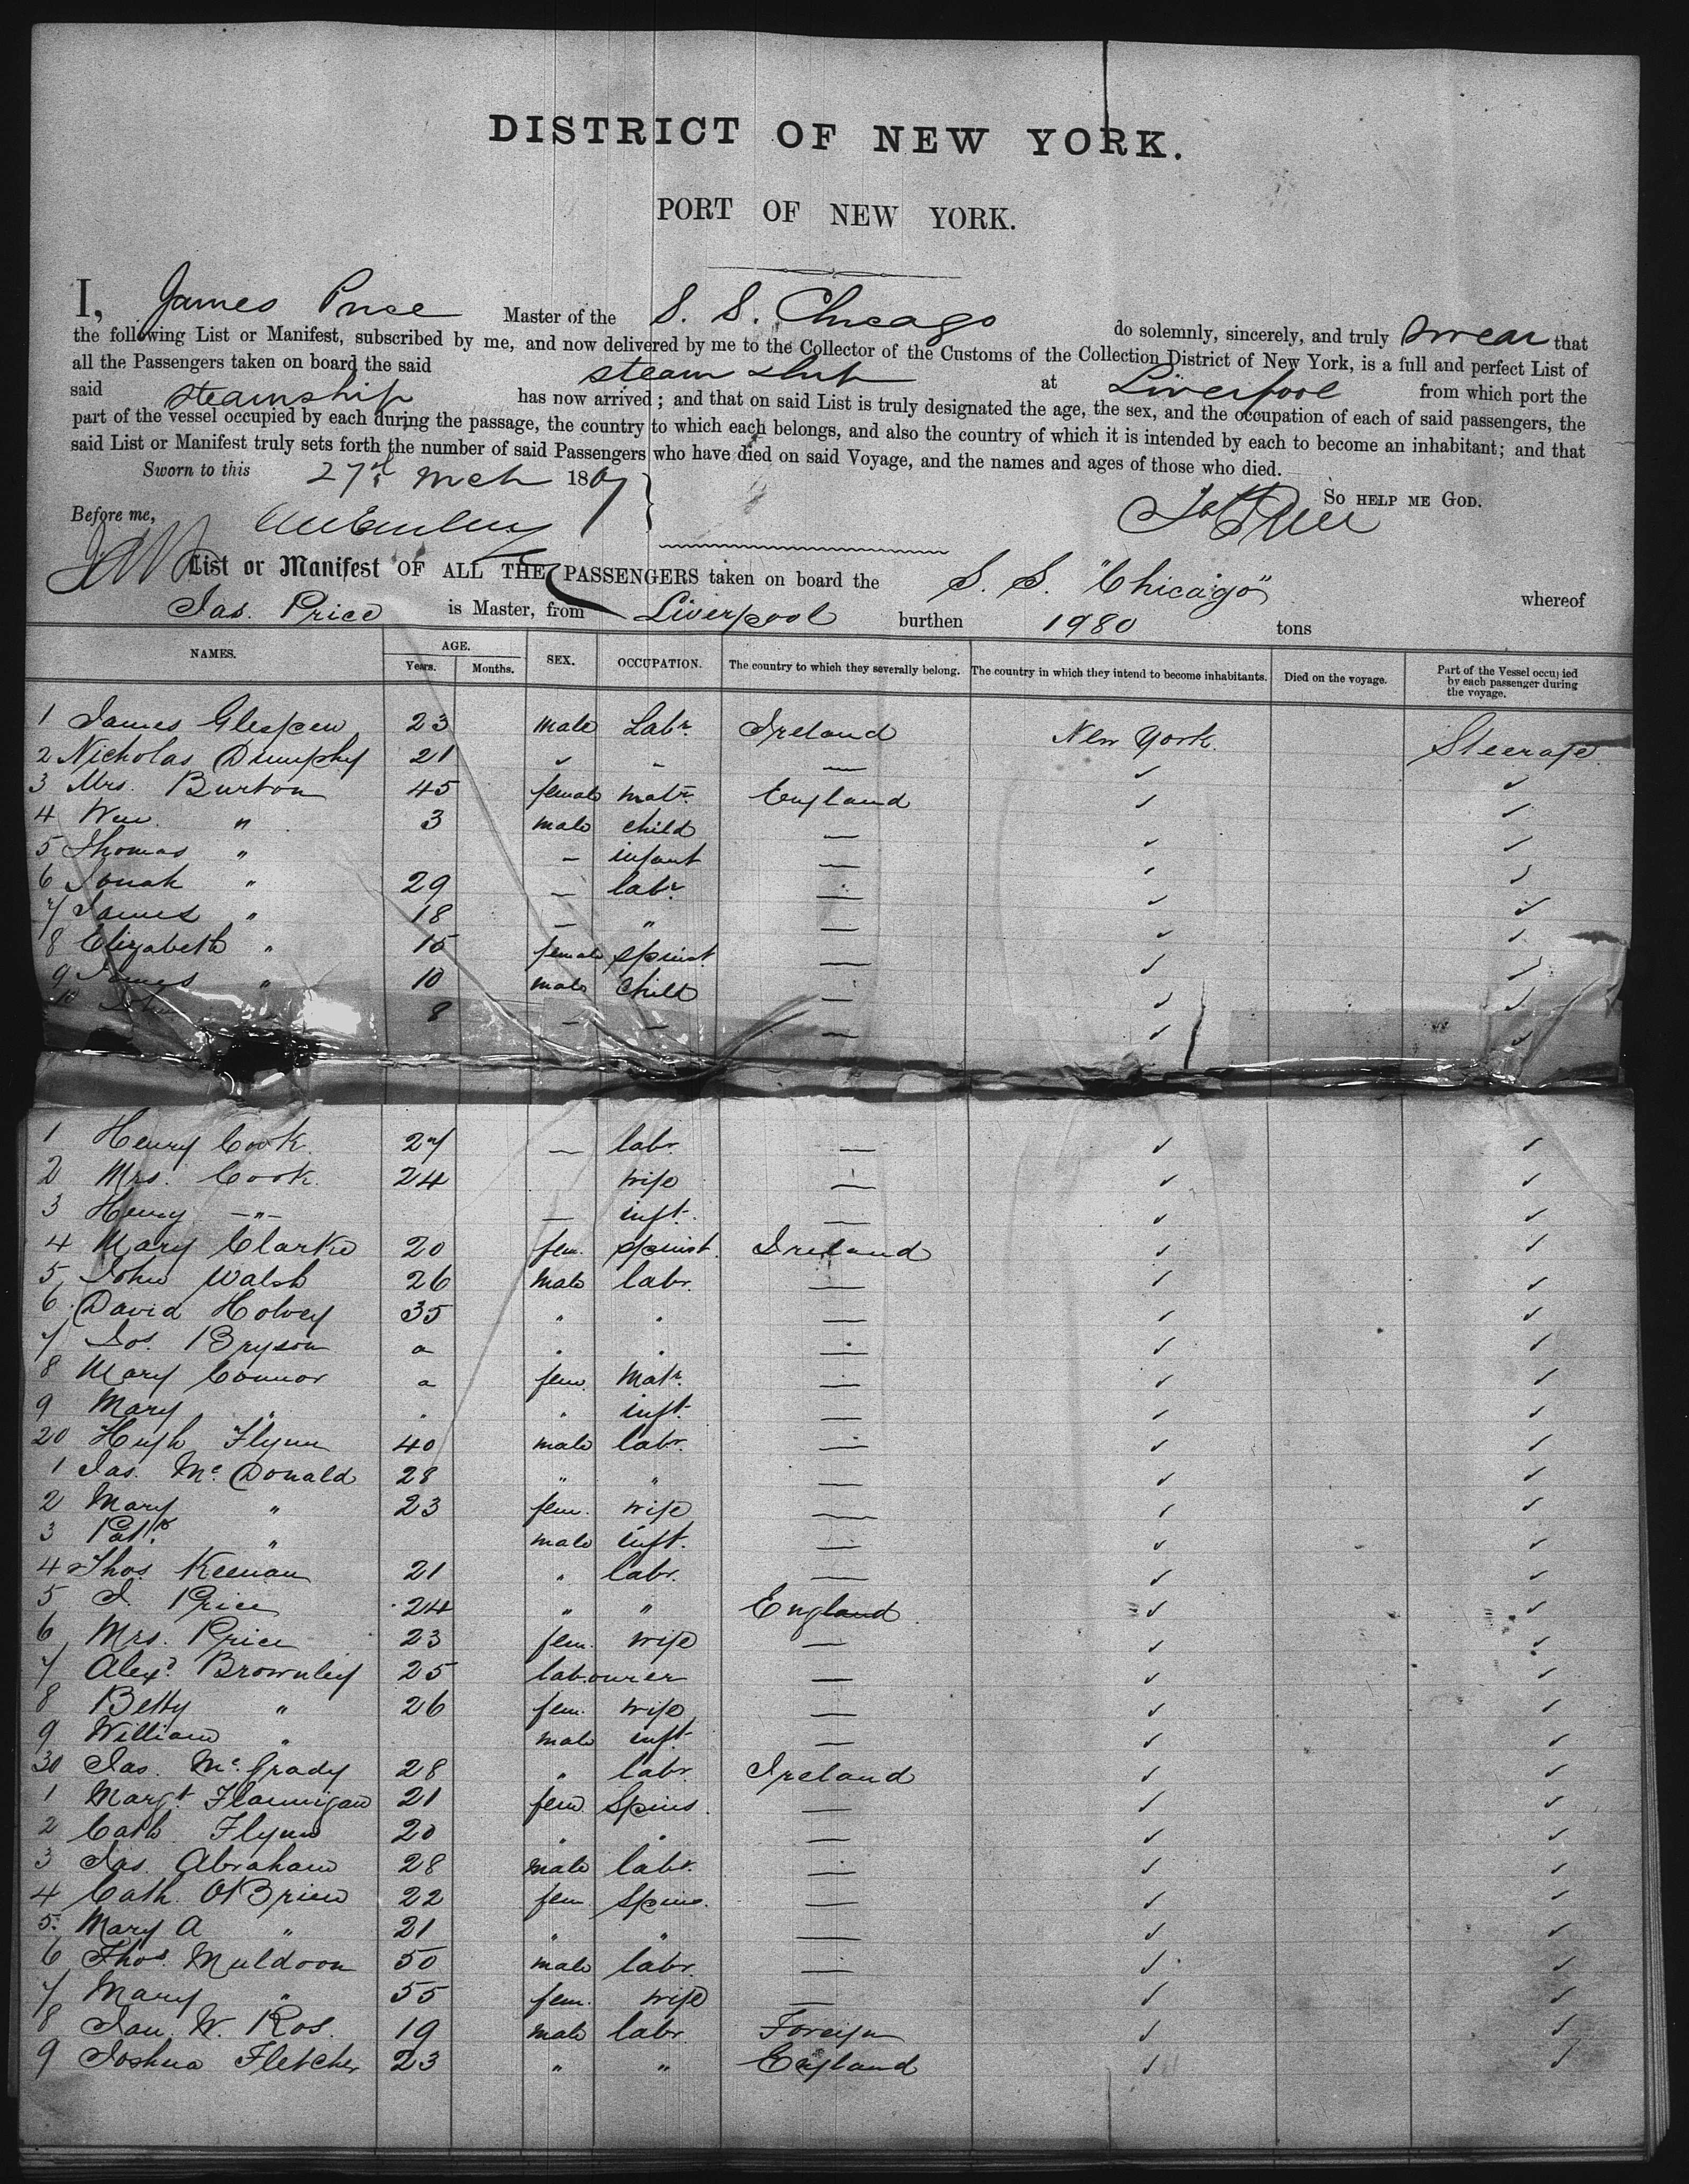 DISTRICT OF NEW YORK.
PORT OF NEW YORK.
I, James Price Master of the S. S. Chicago do solemnly, sincerely, and truly swear that
the following List or Manifest, subscribed by me, and now delivered by me to the Collector of the Customs of the Collection District of New York, is a full and perfect List of
all the Passengers taken on board the said steam ship at Liverpool from which port the
said steamship has now arrived; and that on said List is truly designated the age, the sex, and the occupation of each of said passengers, the
part of the vessel occupied by each during the passage, the country to which each belongs, and also the country of which it is intended by each to become an inhabitant; and that
said List or Manifest truly sets forth the number of said Passengers who have died on said Voyage, and the names and ages of those who died.
Sworn to this 27th Mch 1867 SO HELP ME GOD.
Before me, Jas Price
List or Manifest OF ALL THE PASSENGERS taken on board the S. S. "Chicago" whereof
Jas. Price is Master, from Liverpool burthen 1980 tons
NAMES. AGE. Years. Months. SEX. OCCUPATION. The country to which they severally belong. The country in which they intend to become inhabitants. Died on the voyage. Part of the Vessel occupied by each passenger during the voyage.
1 James 23 male Labr. Ireland New York. Steerage
2 Nicholas Dumphy 21 " - — ✓ ✓
3 Mrs. Burton 45 female matr. England ✓ ✓
4 Wm. " 3 male child — ✓ ✓
5 Thomas " - infant — ✓ ✓
6 Jonah " 29 — labr. — ✓ ✓
7 James " 18 — " — ✓ ✓
8 Elizabeth " 15 female spinst. — ✓ ✓
9 James " 10 male child — ✓ ✓
10 8 — — — ✓ ✓
1 Henry Cook. 27 — labr. — ✓ ✓
2 Mrs. Cook. 24 wife — ✓ ✓
3 Henry —"— — inft. — ✓ ✓
4 Mary Clarke 20 fem. spinst. Ireland ✓ ✓
5 John Walsh 26 male labr. — ✓ ✓
6 David Holvey 35 " " — ✓ ✓
7 Jos. Bryson a " " — ✓ ✓
8 Mary Connor a fem. Matr. — ✓ ✓
9 Mary " " " inft. — ✓ ✓
20 Hugh Flynn 40 male labr. — ✓ ✓
1 Jas. McDonald 28 " " ✓ ✓
2 Mary " 23 fem. wife — ✓ ✓
3 Patk. " male inft. — ✓ ✓
4 Thos. Keenan 21 " labr. — ✓ ✓
5 J. Price 24 " " England ✓ ✓
6 Mrs. Price 23 fem. wife — ✓ ✓
7 Alexr. Brownley 25 labourer — ✓ ✓
8 Betty " 26 fem. wife — ✓ ✓
9 William " male inft. — ✓ ✓
30 Jas. McGrady 28 " labr. Ireland ✓ ✓
1 Margt. Flannigan 21 fem Spins. — ✓ ✓
2 Cath. Flynn 20 " " — ✓ ✓
3 Jas. Abraham 28 male labr. — ✓ ✓
4 Cath. O'Brien 22 fem Spins. — ✓ ✓
5 Mary A " 21 " " — ✓ ✓
6 Thos. Muldoon 50 male labr. — ✓ ✓
7 Mary " 55 fem. wife — ✓ ✓
8 Jan. W. Ros. 19 male labr. Foreign ✓ ✓
9 Joshua Fletcher 23 " " England ✓ ✓